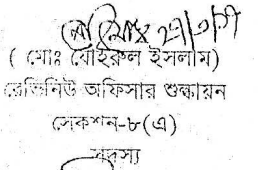 ( মোঃ যোইরুল ইসলাম)
রেভিনিউ অফিসার শুল্কায়ন
সেকশন-৮(এ)
সদস্য